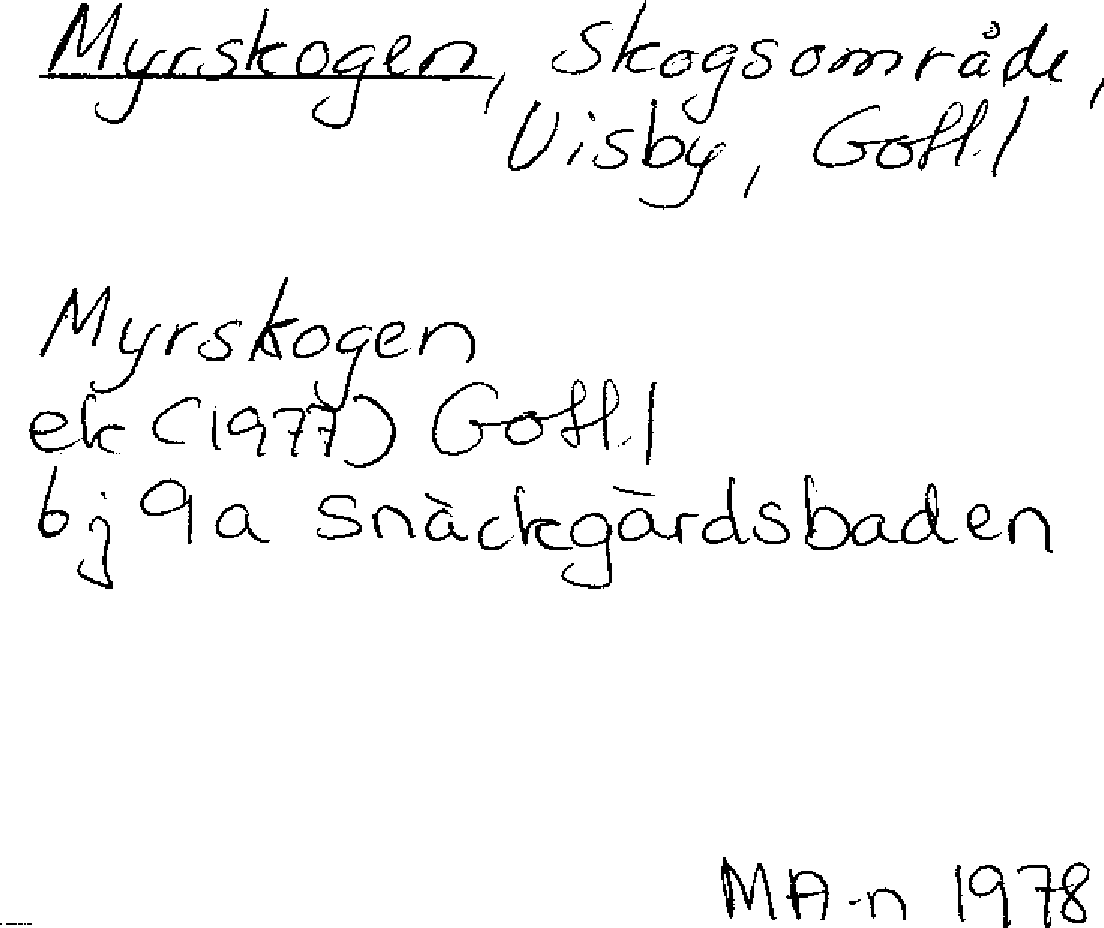 Myrskogen, Skogsområde,
Visby, Gotl.l
Myrskogen
ek (1977) Gotl.l
bj 9a snäckgårdsbaden
MA-n 1978